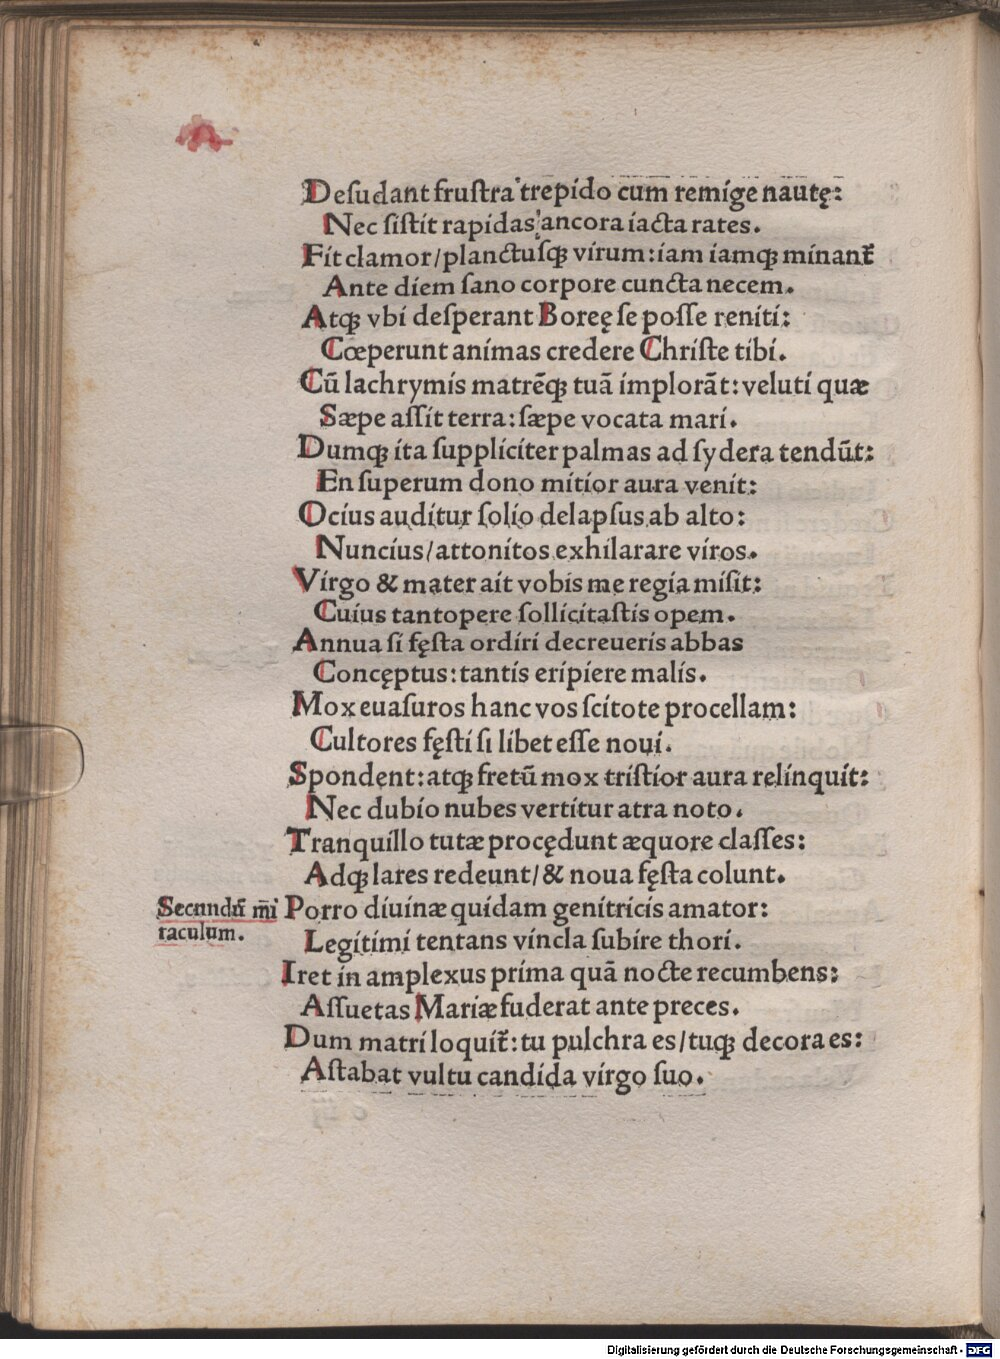 Deſudant fruſtra trepido cum remige nautę:
Nec ſiſtit rapidas ancora iacta rates.
Fit clamor/planctuſqꝫ virum: iam iamqꝫ minant᷑
Ante diem ſano corpore cuncta necem.
Atqꝫ vbi deſperant Boreę ſe poſſe reniti:
Cœperunt animas credere Chriſte tibi.
Cū lachrymis matrēqꝫ tuā implorāt: veluti quæ
Sæpe aſſit terra: ſæpe vocata mari.
Dumqꝫ ita ſuppliciter palmas ad ſydera tendūt:
En ſuperum dono mitior aura venit:
Ocius auditur ſolio delapſus ab alto:
Nuncius/attonitos exhilarare viros.
Virgo & mater ait vobis me regia miſit:
Cuius tantopere ſollicitaſtis opem.
Annua ſi fęſta ordiri decreueris abbas
Concęptus: tantis eripiere malis.
Mox euaſuros hanc vos ſcitote procellam:
Cultores fęſti ſi libet eſſe noui.
Spondent: atqꝫ fretū mox triſtior aura relinquit:
Nec dubio nubes vertitur atra noto.
Tranquillo tutæ procędunt æquore claſſes:
Adqꝫ lares redeunt/& noua fęſta colunt.
Secundū mi
raculum.
Porro diuinæ quidam genitricis amator:
Legitimi tentans vincla ſubire thori.
Iret in amplexus prima quā nocte recumbens:
Aſſuetas Mariæ fuderat ante preces.
Dum matri loquit᷑: tu pulchra es/tuqꝫ decora es:
Aſtabat vultu candida virgo ſuo.
Digitalisierung gefördert durch die Deutsche Forschungsgemeinschaft - DFG